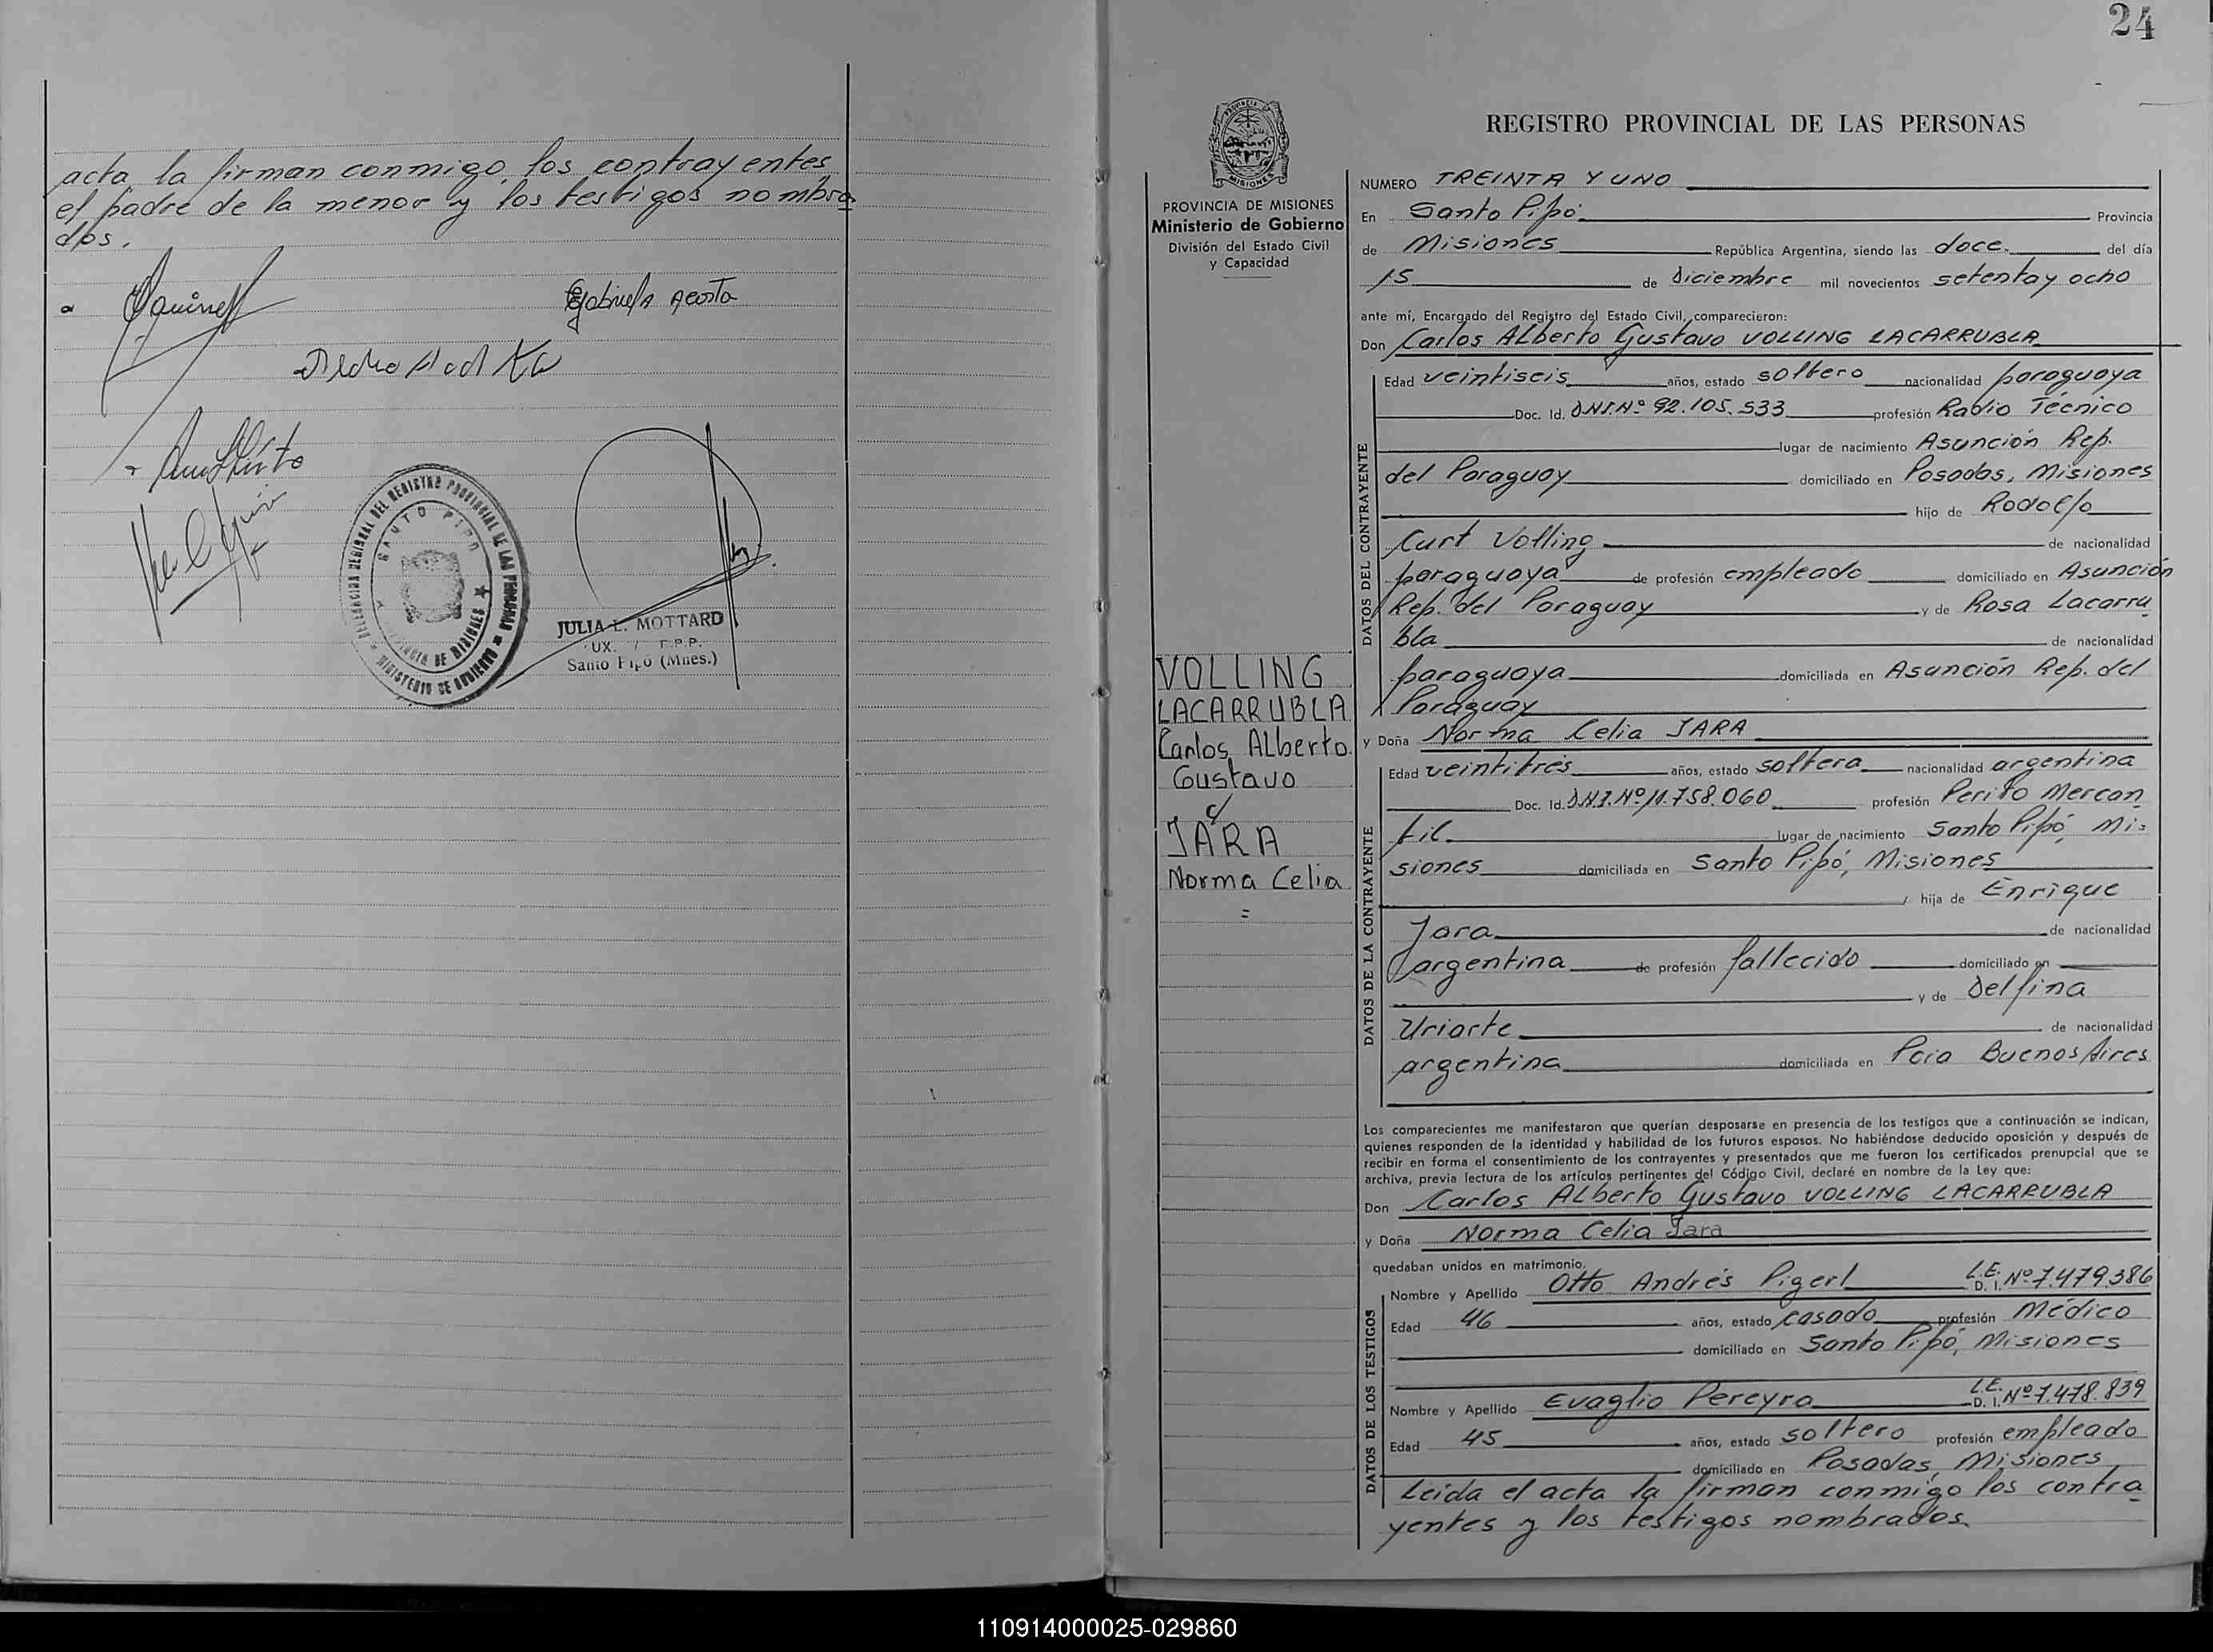 acta la firman conmigo los contrayentes
el padre de la menor y los testigos nombra
dos.
Gabriela Acosta
DELEGACION REGISRAL DEL REGISTRO PROVINCIAL DE LAS PERSONAS
SANTO PIPO
PROVINCIA DE MISIONES
MINISTERIO DE GOBIERNO
JULIA L. MOTTARD
Santo Pipó (Mnes.)
24
REGISTRO PROVINCIAL DE LAS PERSONAS
PROVINCIA
MISIONES
PROVINCIA DE MISIONES
Ministerio de Gobierno
División del Estado Civil
y Capacidad
VOLLING
LACARRUBLA
Carlos Alberto
Gustavo
c/
JARA
Norma Celia
=
NUMERO TREINTA Y UNO
En Santo Pipó Provincia
de Misiones República Argentina, siendo las doce del día
15 de diciembre mil novecientos setenta y ocho
ante mí, Encargado del Registro del Estado Civil, comparecieron:
Don Carlos Alberto Gustavo VOLLING LACARRUBLA
DATOS DEL CONTRAYENTE
Edad veintiseis años, estado soltero nacionalidad paraguaya
Doc. Id. D.N.I.Nº 92.105.533 profesión Radio Técnico
lugar de nacimiento Asunción Rep.
del Paraguay domiciliado en Posadas, Misiones
hijo de Rodolfo
Curt Volling de nacionalidad
paraguaya de profesión empleado domiciliado en Asunción
Rep. del Paraguay y de Rosa Lacarru
bla de nacionalidad
paraguaya domiciliada en Asunción Rep. del
Paraguay
y Doña Norma Celia JARA
DATOS DE LA CONTRAYENTE
Edad veintitrés años, estado soltera nacionalidad argentina
Doc. Id. D.N.I.Nº 11.758.060 profesión Perito Mercan
til. lugar de nacimiento Santo Pipó, Mi-
siones domiciliada en Santo Pipó, Misiones
hija de Enrique
Jara de nacionalidad
argentina de profesión fallecido domiciliado en
y de Delfina
Uriarte de nacionalidad
argentina domiciliada en Pcia Buenos Aires
Los comparecientes me manifestaron que querían desposarse en presencia de los testigos que a continuación se indican,
quienes responden de la identidad y habilidad de los futuros esposos. No habiéndose deducido oposición y después de
recibir en forma el consentimiento de los contrayentes y presentados que me fueron los certificados prenupcial que se
archiva, previa lectura de los artículos pertinentes del Código Civil, declaré en nombre de la Ley que:
Don Carlos Alberto Gustavo VOLLING LACARRUBLA
y Doña Norma Celia Jara
quedaban unidos en matrimonio.
DATOS DE LOS TESTIGOS
Nombre y Apellido Otto Andrés Pigerl L.E. D. I. Nº 7.479.386
Edad 46 años, estado casado profesión Médico
domiciliado en Santo Pipó, Misiones
Nombre y Apellido Evaglio Pereyra L.E. D. I. Nº 7.478.839
Edad 45 años, estado soltero profesión empleado
domiciliado en Posadas, Misiones
Leída el acta la firman conmigo los contra
yentes y los testigos nombrados.
110914000025-029860